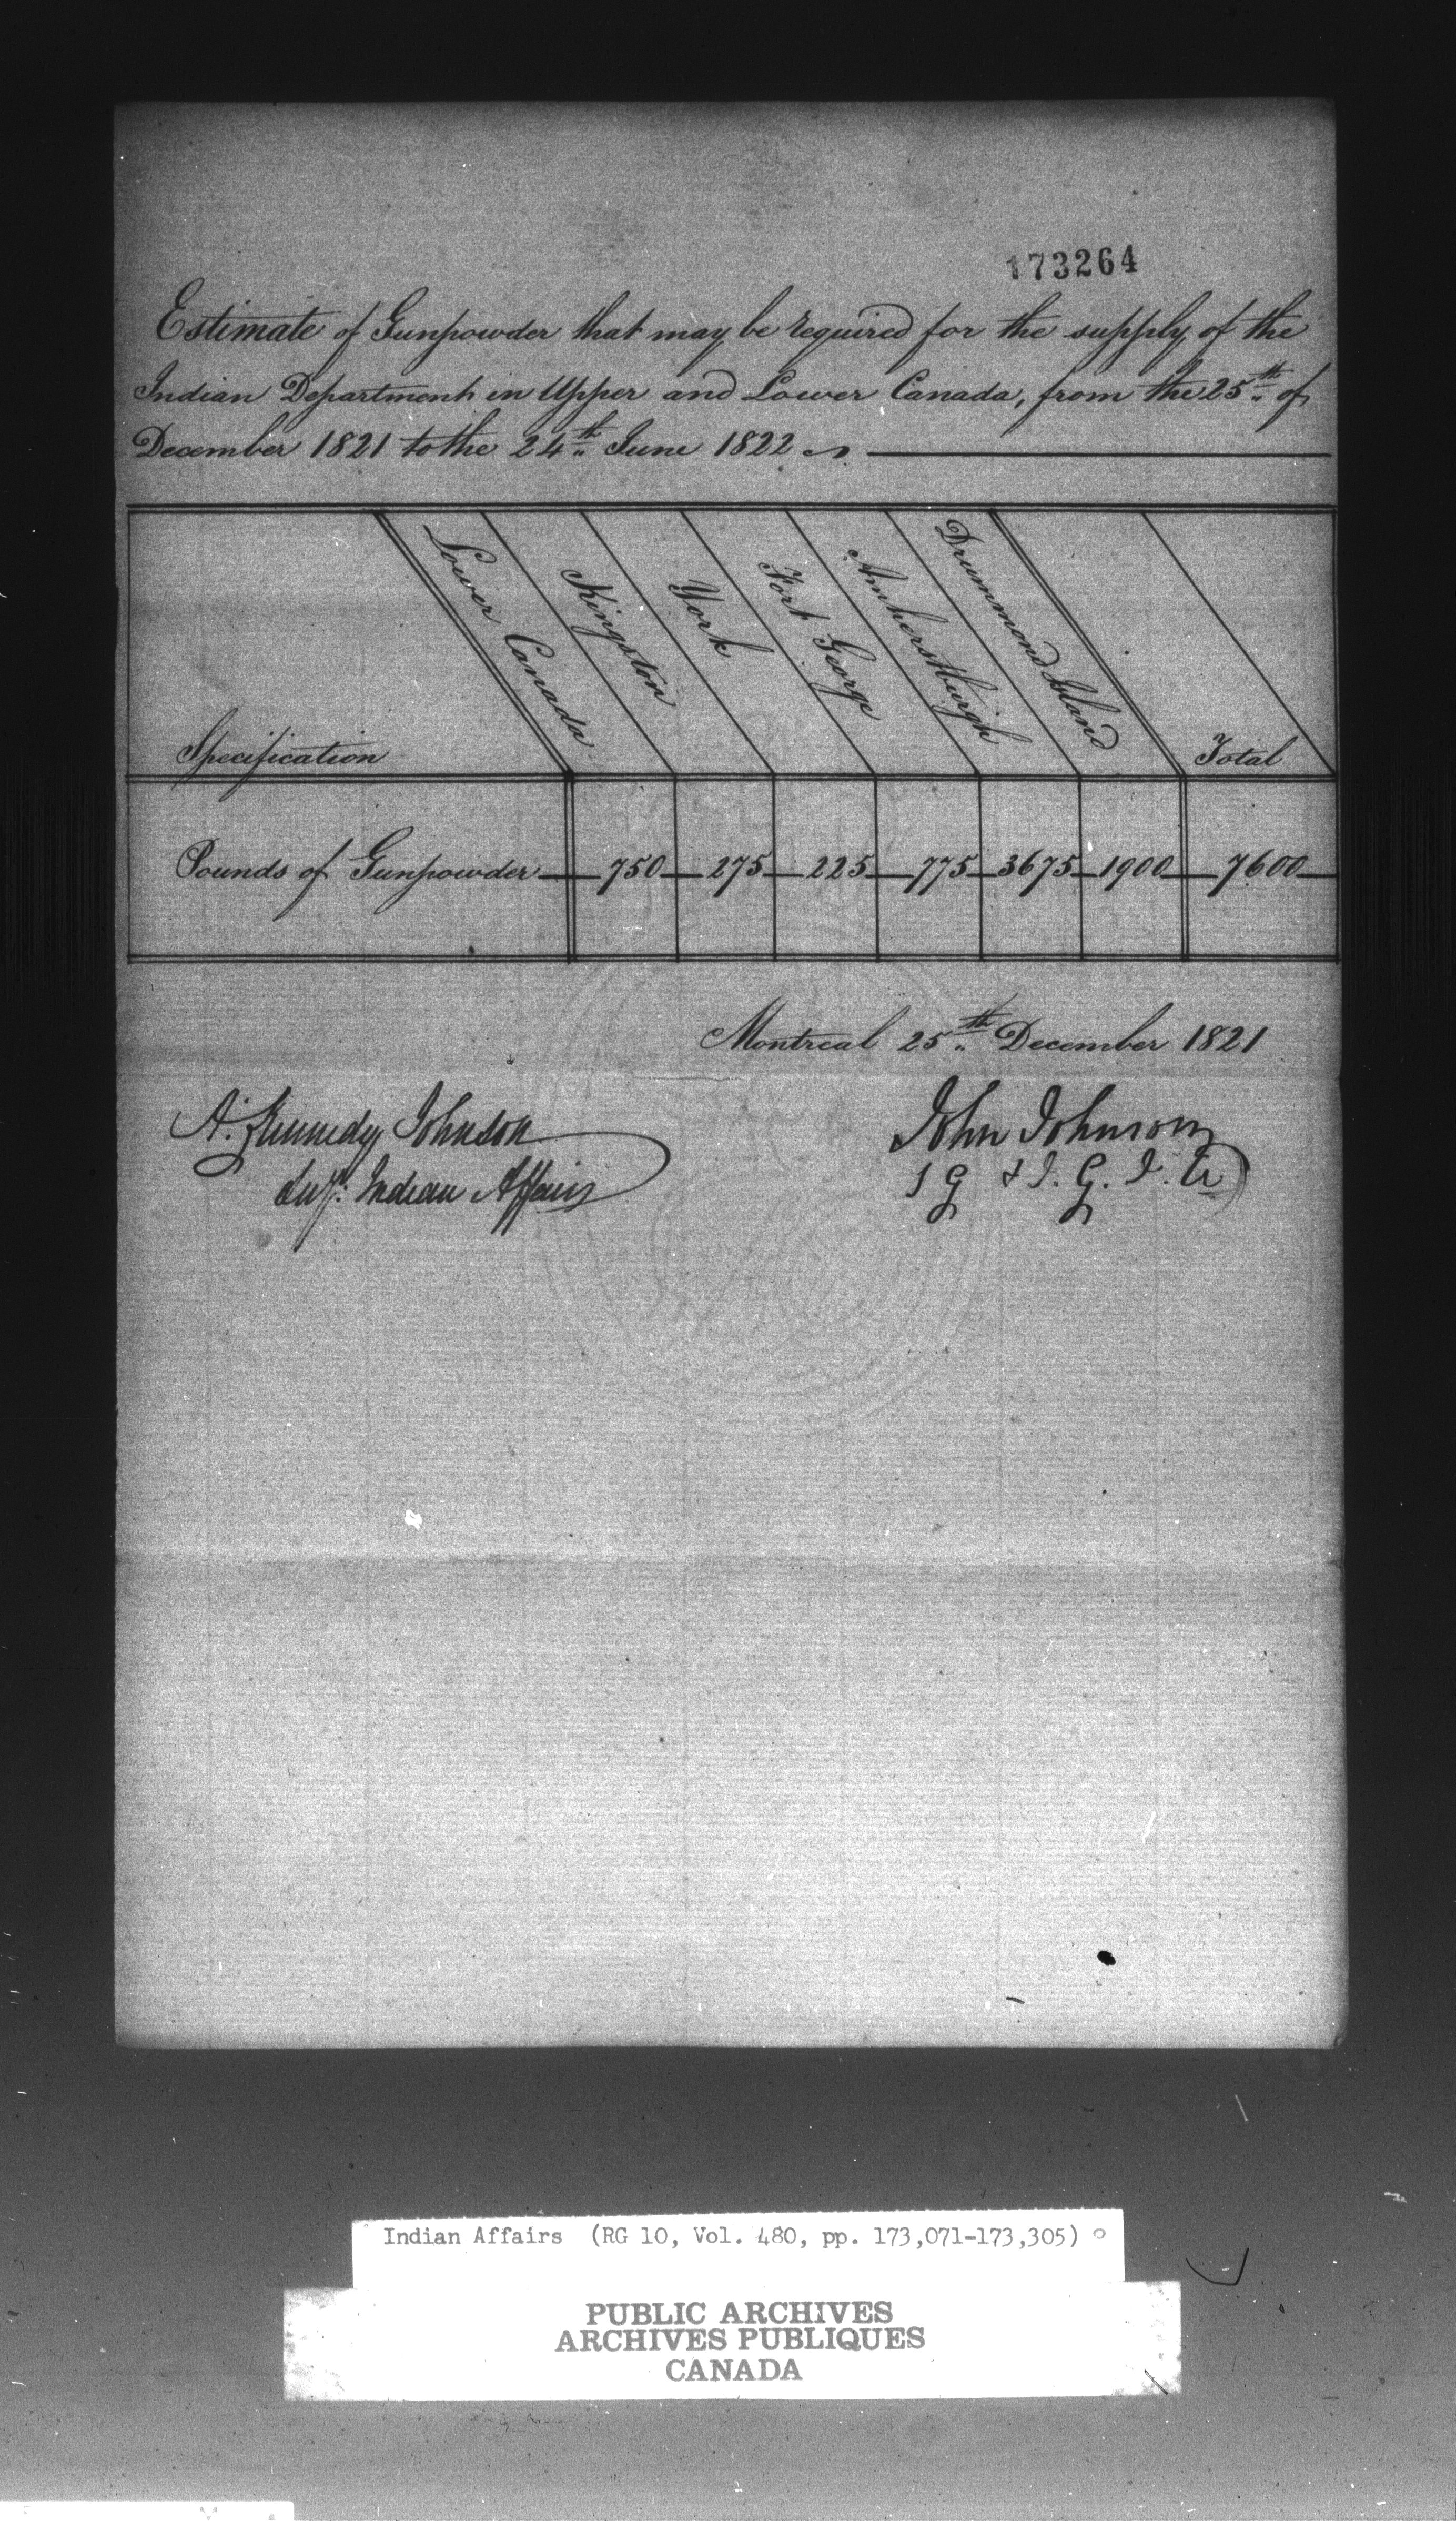 173264
Estimate of Gunpowder that may be required for the supply of the
Indian Department in Upper and Lower Canada, from the 25th of
December 1821 to the 24th June 1822
Specification
Lower Canada
Kingston
York
Fort George
Amherstburgh
Drummond Island
Total
Pounds of Gunpowder 750 275 225 775 3675 1900 7600
Montreal 25th December 1821
A. Kennedy Johnson
Indian Affairs
John Johnson
S G & I. G. I. A
Indian Affairs (RG 10, Vol. 480, pp. 173,071-173,305)
PUBLIC ARCHIVES
ARCHIVES PUBLIQUES
CANADA